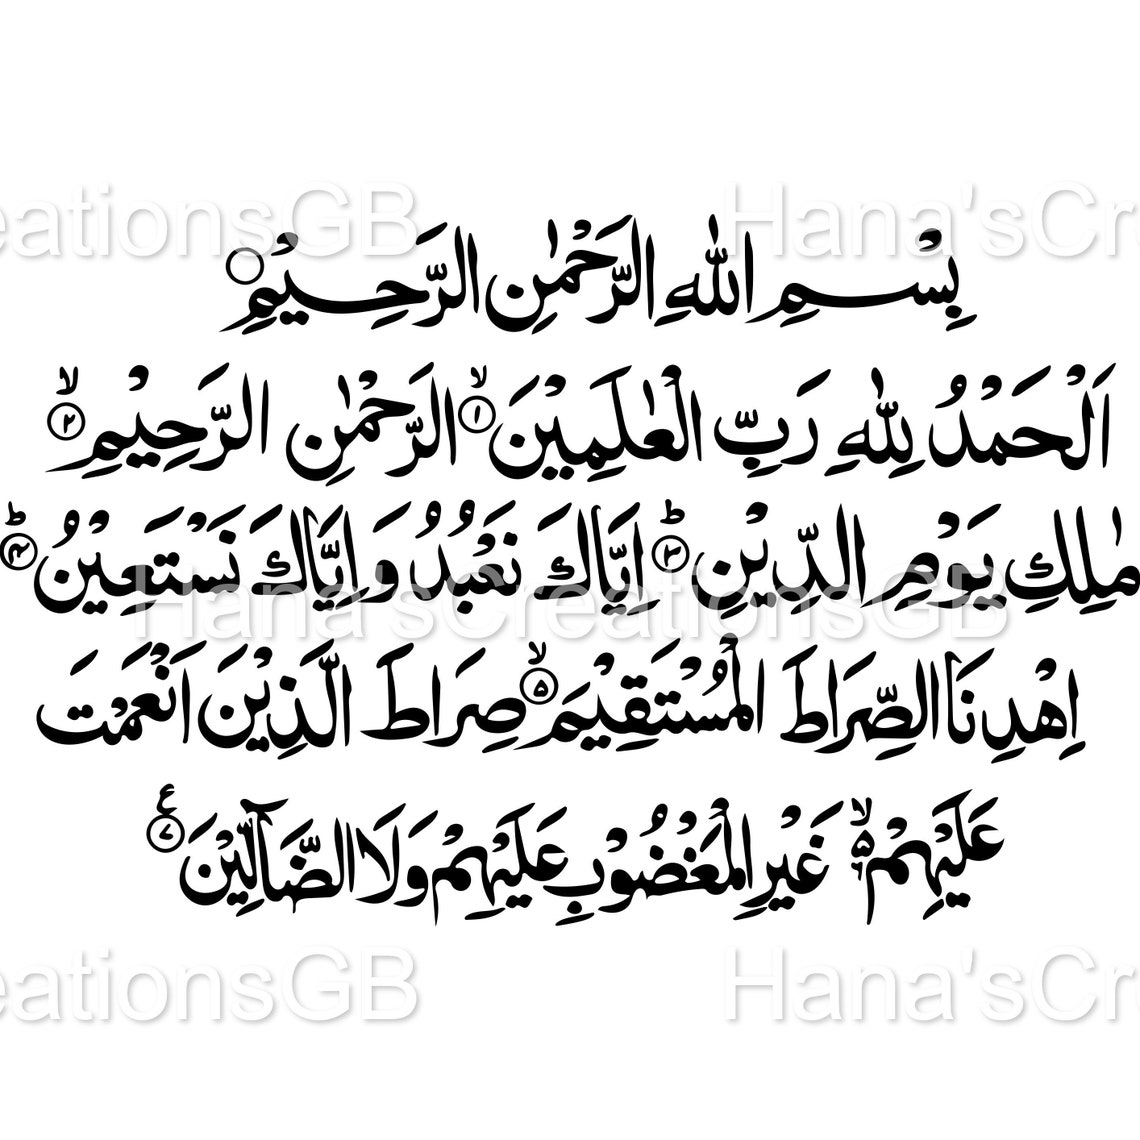 eationsGB Hana'sCre
بِسْمِ اللهِ الرَّحْمٰنِ الرَّحِيْمِ ○
اَلْحَمْدُ لِلّٰهِ رَبِّ الْعٰلَمِيْنَ ۙ‏١ الرَّحْمٰنِ الرَّحِيْمِ ۙ‏٢
مٰلِكِ يَوْمِ الدِّيْنِ ؕ‏٣ اِيَّاكَ نَعْبُدُ وَاِيَّاكَ نَسْتَعِيْنُ ؕ‏۴
Hana'sCreationsGB
اِهْدِنَا الصِّرَاطَ الْمُسْتَقِيْمَ ۙ‏۵ صِرَاطَ الَّذِيْنَ اَنْعَمْتَ
عَلَيْهِمْ ۙ۵ غَيْرِ الْمَغْضُوْبِ عَلَيْهِمْ وَلَا الضَّآلِّيْنَ ٧ ع
eationsGB Hana'sCre